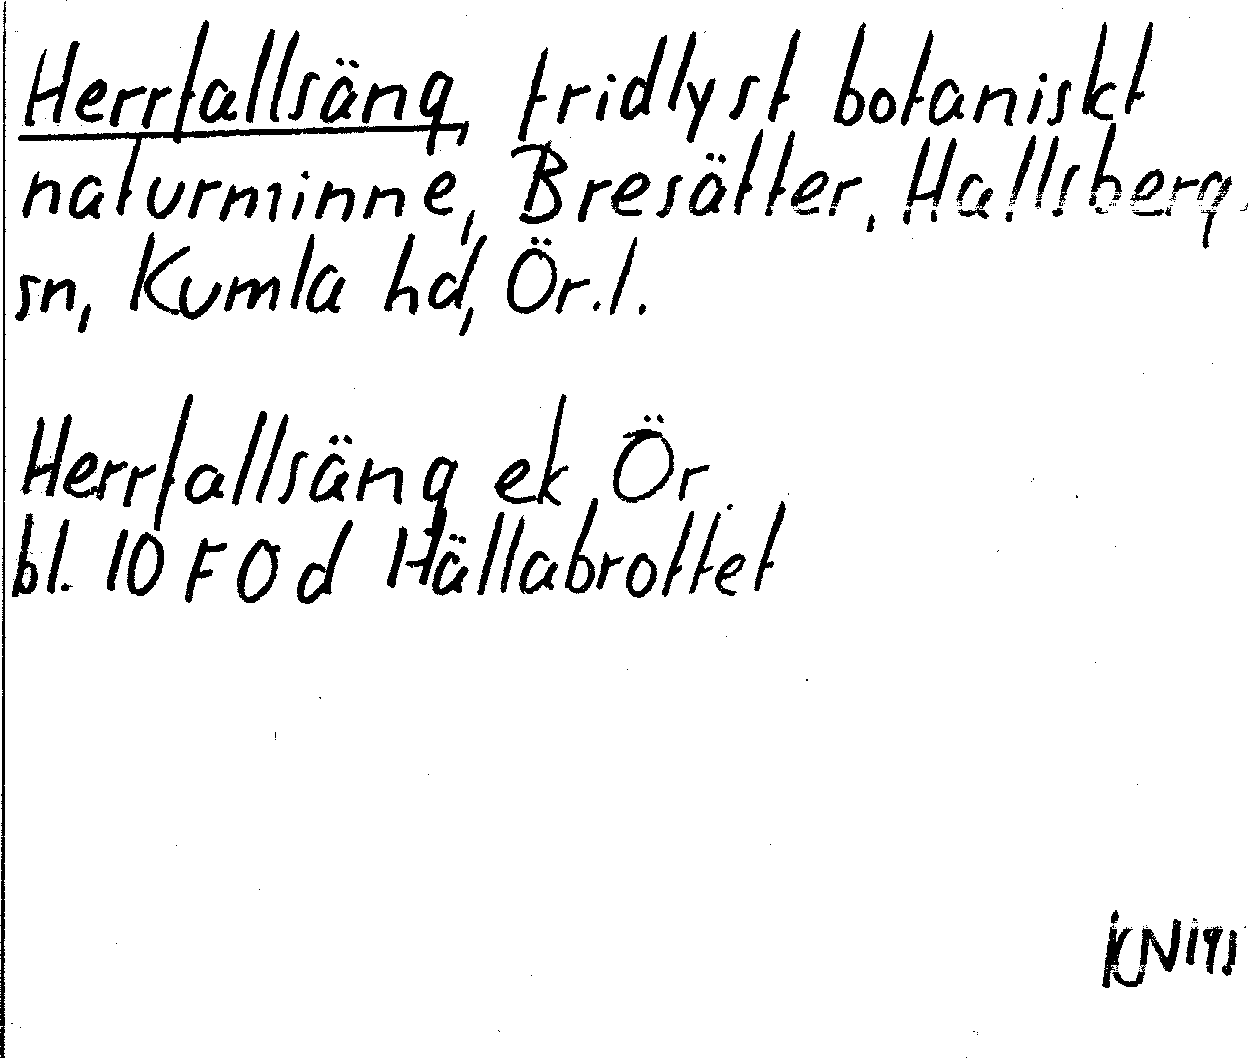 Herrfallsäng, fridlyst botaniskt
naturminne, Bresätter, Hallsberg
sn, Kumla hd, Ör.l.
Herrfallsäng ek Ör
bl. 10 F 0 d Hällabrottet